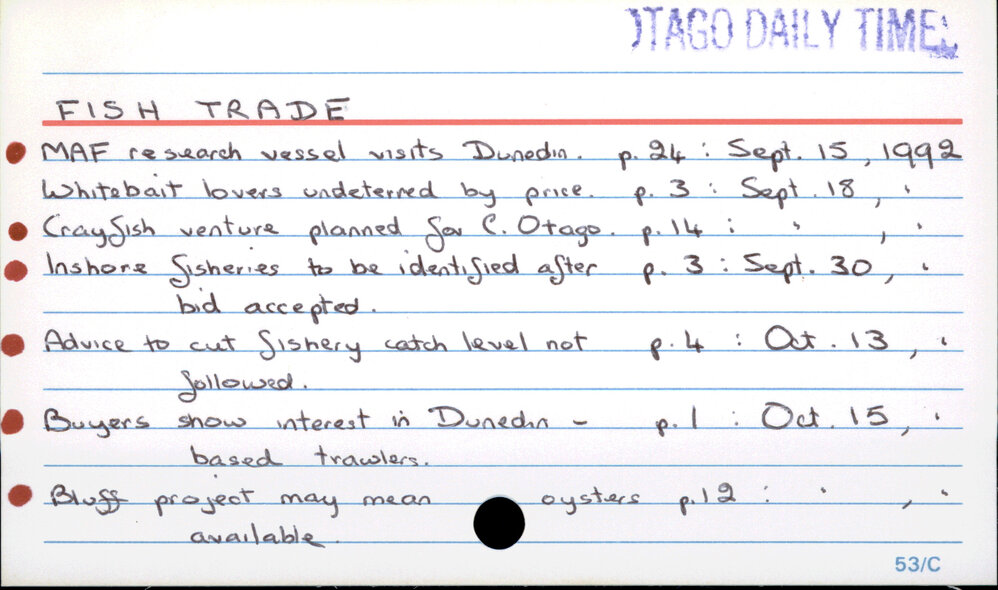 OTAGO DAILY TIMES
FISH TRADE
MAF research vessel visits Dunedin. p. 24 : Sept. 15, 1992
Whitebait lovers undeterred by price. p. 3 : Sept. 18, "
Crayfish venture planned for C. Otago. p. 14 : " , "
Inshore fisheries to be identified after p. 3 : Sept. 30, "
bid accepted.
Advice to cut fishery catch level not p. 4 : Oct. 13, "
followed.
Buyers show interest in Dunedin - p. 1 : Oct. 15, "
based trawlers.
Bluff project may mean oysters p. 12 : " , "
available.
53/C